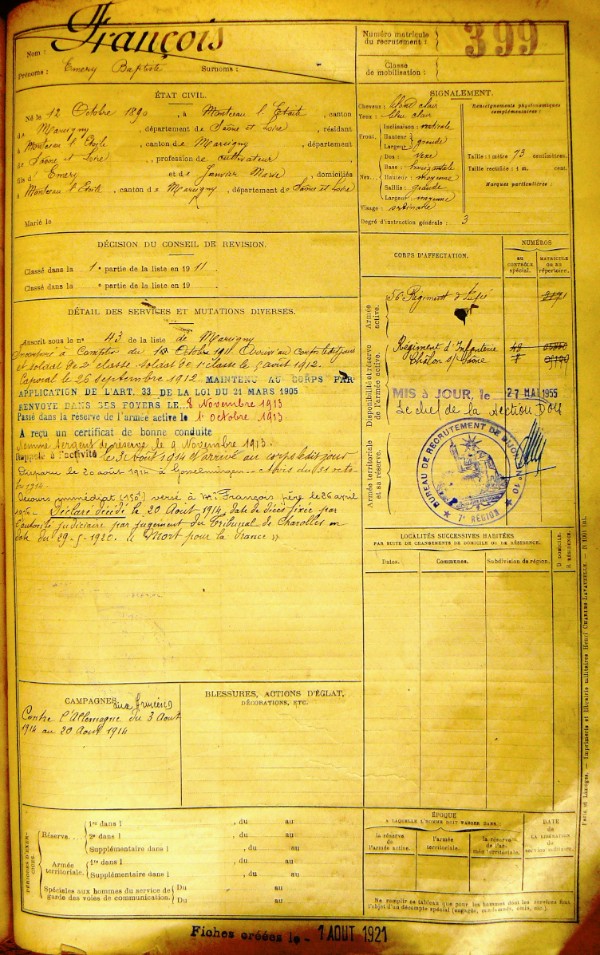 Nom : François
Prénoms : Emery Baptiste Surnoms :
Numéro matricule du recrutement : 399
Classe de mobilisation :
ÉTAT CIVIL.
Né le 12 Octobre 1890, à Montceau l. Etoile, canton
de Marcigny, département de Saône et Loire, résidant
à Montceau l. Etoile, canton de Marcigny, département
de Saône et Loire, profession de cultivateur
fils d' Emery et de Janvier Marie, domiciliés
à Montceau l. Etoile, canton de Marcigny, département de Saône et Loire
Marié le
SIGNALEMENT.
Cheveux : clair
Yeux : bleu clair
Front. Inclinaison : verticale
Hauteur : grande
Largeur :
Nez. Dos :
Base : horizontale
Hauteur : moyenne
Saillie : grande
Largeur : moyenne
Visage :
Renseignements physionomiques complémentaires :
Taille : 1 mètre 73 centimètres.
Taille rectifiée : 1 m. cent.
Marques particulières :
Degré d'instruction générale : 3
DÉCISION DU CONSEIL DE REVISION.
Classé dans la 1e partie de la liste en 1911.
Classé dans la e partie de la liste en 19
DÉTAIL DES SERVICES ET MUTATIONS DIVERSES.
Inscrit sous le n° 43 de la liste de Marcigny
à compter du 10 Octobre 1911. Arrivé au corps le dit jour
et soldat de 2e classe. Soldat de 1e classe le août 1912.
Caporal le 26 septembre 1912. MAINTENU AU CORPS PAR
APPLICATION DE L'ART. 33 DE LA LOI DU 21 MARS 1905
RENVOYÉ DANS SES FOYERS LE 8 Novembre 1913
Passé dans la réserve de l'armée active le 1er octobre 1913
A reçu un certificat de bonne conduite
Nommé sergent de réserve le 9 Novembre 1913.
Rappelé à l'activité le 3 Août 1914 arrivé au corps le dit jour
Disparu le 20 août 1914 à Avis du
Secours immédiat (150f) versé à Mr François, père le 26 avril
Déclaré décédé le 20 Août 1914, date du décès fixée par
judiciaire par jugement du Tribunal de Charolles en
date du 29-5-1920. « Mort pour la France »
CORPS D'AFFECTATION.
NUMÉROS
AU CONTRÔLE SPÉCIAL.
MATRICULE OU AU RÉPERTOIRE.
Armée active.
56e Régiment d'Infie
Disponibilité et réserve de l'armée active.
Régiment d'Infanterie
Châlon s/Saône
Armée territoriale et sa réserve.
MIS à JOUR, le 27 MAI 1955
Le chef de la Section
BUREAU DE RECRUTEMENT DE DIJON N° 10
7e RÉGION
LOCALITÉS SUCCESSIVES HABITÉES
PAR SUITE DE CHANGEMENTS DE DOMICILE OU DE RÉSIDENCE.
Dates.
Communes.
Subdivision de région.
D. DOMICILE.
R. RÉSIDENCE.
CAMPAGNES.
Contre l'Allemagne du 3 Août
1914 au 20 Août 1914
BLESSURES, ACTIONS D'ÉCLAT,
DÉCORATIONS, ETC.
PÉRIODES D'EXERCICES.
Réserve. 1re dans l , du au
2e dans l , du au
Supplémentaire dans l , du au
Armée territoriale. 1re dans l , du au
Supplémentaire dans l , du au
Spéciales aux hommes du service de garde des voies de communication. Du au
Du au
ÉPOQUE
A LAQUELLE L'HOMME DOIT PASSER DANS
la réserve de l'armée active.
l'armée territoriale.
la réserve de l'armée territoriale.
DATE
DE LA LIBÉRATION
Fiches créées le 1 AOUT 1921